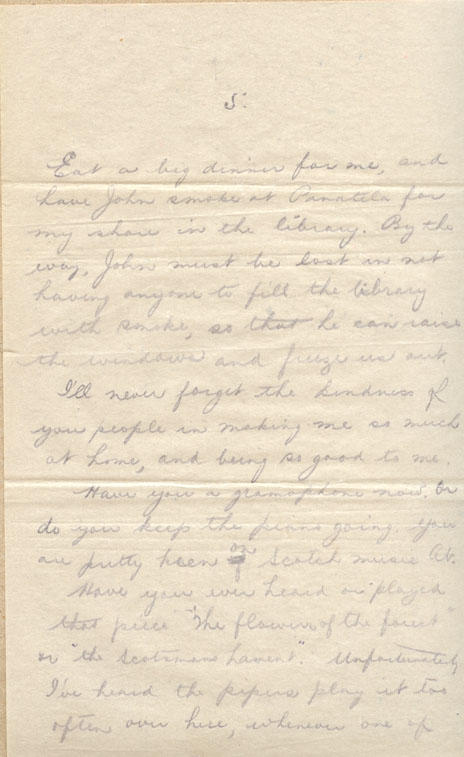 5.
Eat a big dinner for me, and
have John smoke at Panatela for
my share in the library. By the
way, John must be lost in not
having anyone to fill the library
with smoke, so that he can raise
the windows and freeze us out.
I'll never forget the kindness of
you people in making me so much
at home, and being so good to me.
Have you a gramophone now. Or
do you keep the piano going you
are pretty keen on Scotch music
Have you ever heard or played
that piece "The flowers of the forest"
or "the Scotsmans lament". Unfortunately
I've heard the pipers play it too
often over here, whenever one of